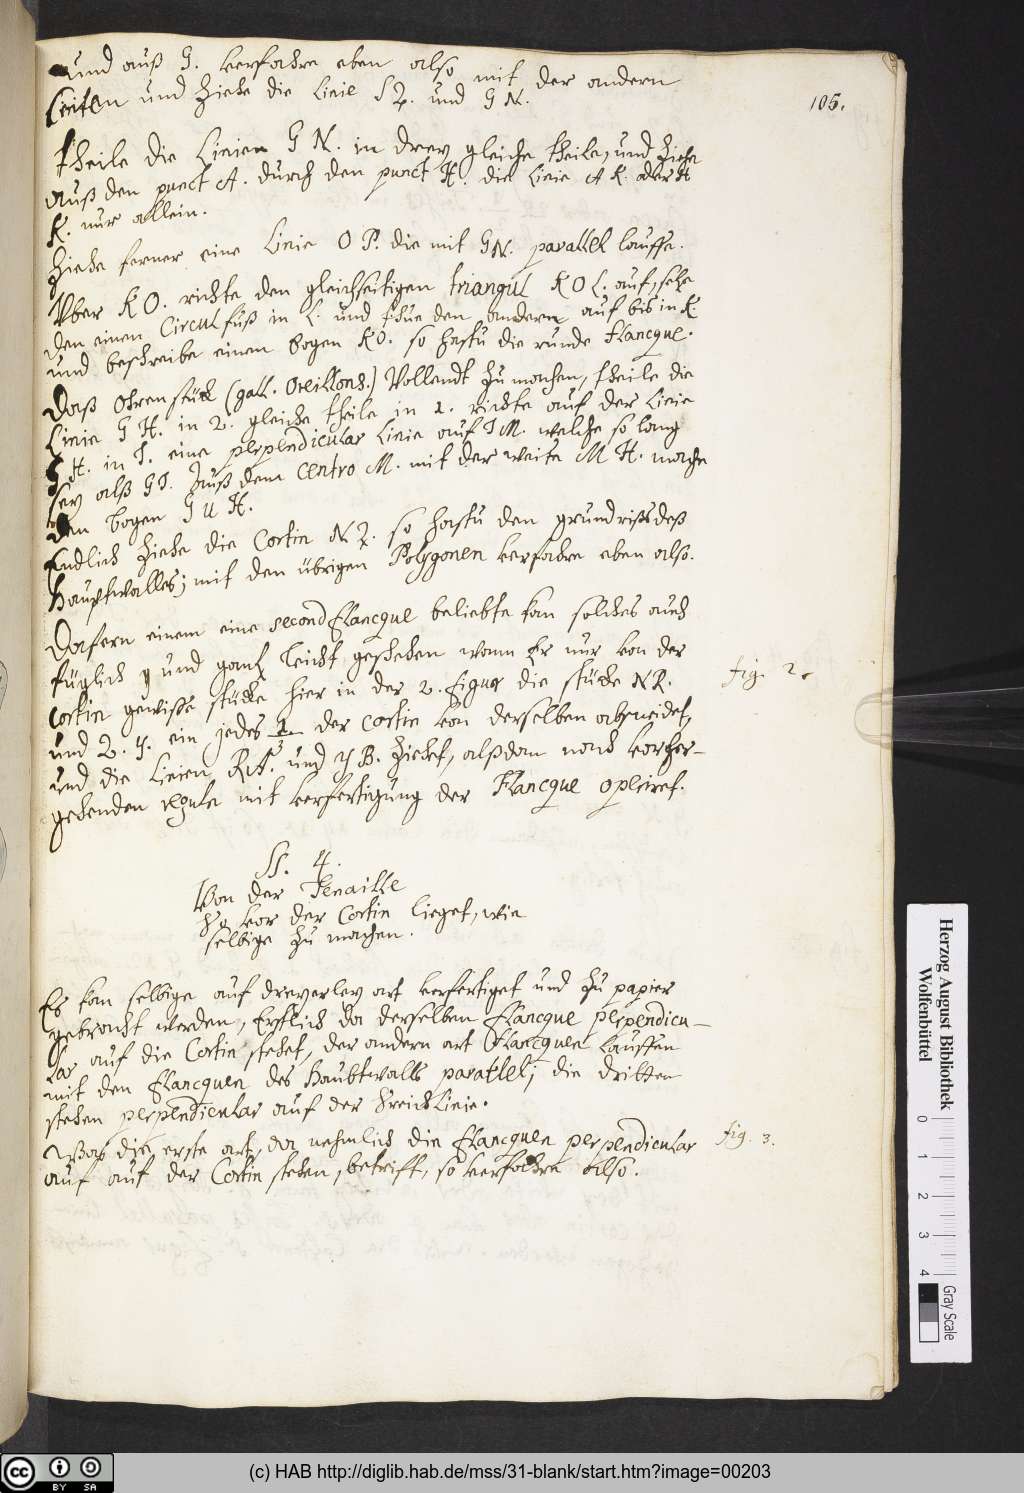 und auß G. verfahre eben also mit der andern
seiten und ziehe die Linie S Z. und G N.
105.
theile die Linien G N. in drey gleiche theile, und ziehe
auß den punct A. durch den punct H. die Linie A K. oder H
K. nur allein.
Ziehe ferner eine Linie O P. die mit GN. parallel lauffe.
Uber KO. richte den gleichseitigen triangul KOL. auf, setze
den einen Circul fuß in L. und thue den andern auf bis in K.
und beschreibe einen bogen KO. so hastu die runde Flancque.
Daß Ohrenstück (gall. Oreillons.) Vollendt zu machen, theile die
Linie G H. in 2. gleiche theile in I. richte auf der Linie
G H. in I. eine perpendicular Linie auf I M. welche so lang
sey alß GI. Auß dem Centro M. mit der weite M H. mache
den bogen G u H.
Endlich ziehe die Cortin N Z. so hastu den grundriß deß
Hauptwalles; mit den übrigen Polygonen verfahre eben also.
Dafern einem eine second Flancque beliebte kan solches auch
füglich und gantz leicht geschehen wann Er nur von der
fig. 2.
Cortin gewisse stücke hier in der 2. Figur die stücke NR.
und Z. Y. ein jedes 1/3 der Cortin von derselben abschneidet,
und die Linien RA. und YB. ziehet, alßdan nach vorher-
gehenden regule mit verfertigung der Flancque operiret.
§. 4.
Von der Tenaille
So vor der Cortin lieget, wie
selbige zu machen.
Es kan selbige auf dreyerley art verfertiget und zu papier
gebracht werden, Erstlich da derselben Flancque perpendicu-
lar auf die Cortin stehet, der andern art Flancquen lauffen
mit den Flancquen des Haubtwalls parallel; die dritten
stehen perpendicular auf der Streich Linie.
Waß die erste art, da nehmlich die Flancquen perpendicular
fig. 3.
auf auf der Cortin stehen, betrifft, so verfahre also.
Herzog August Bibliothek
Wolfenbüttel
0 1 2 3 4
Gray Scale
cc BY SA
(c) HAB http://diglib.hab.de/mss/31-blank/start.htm?image=00203